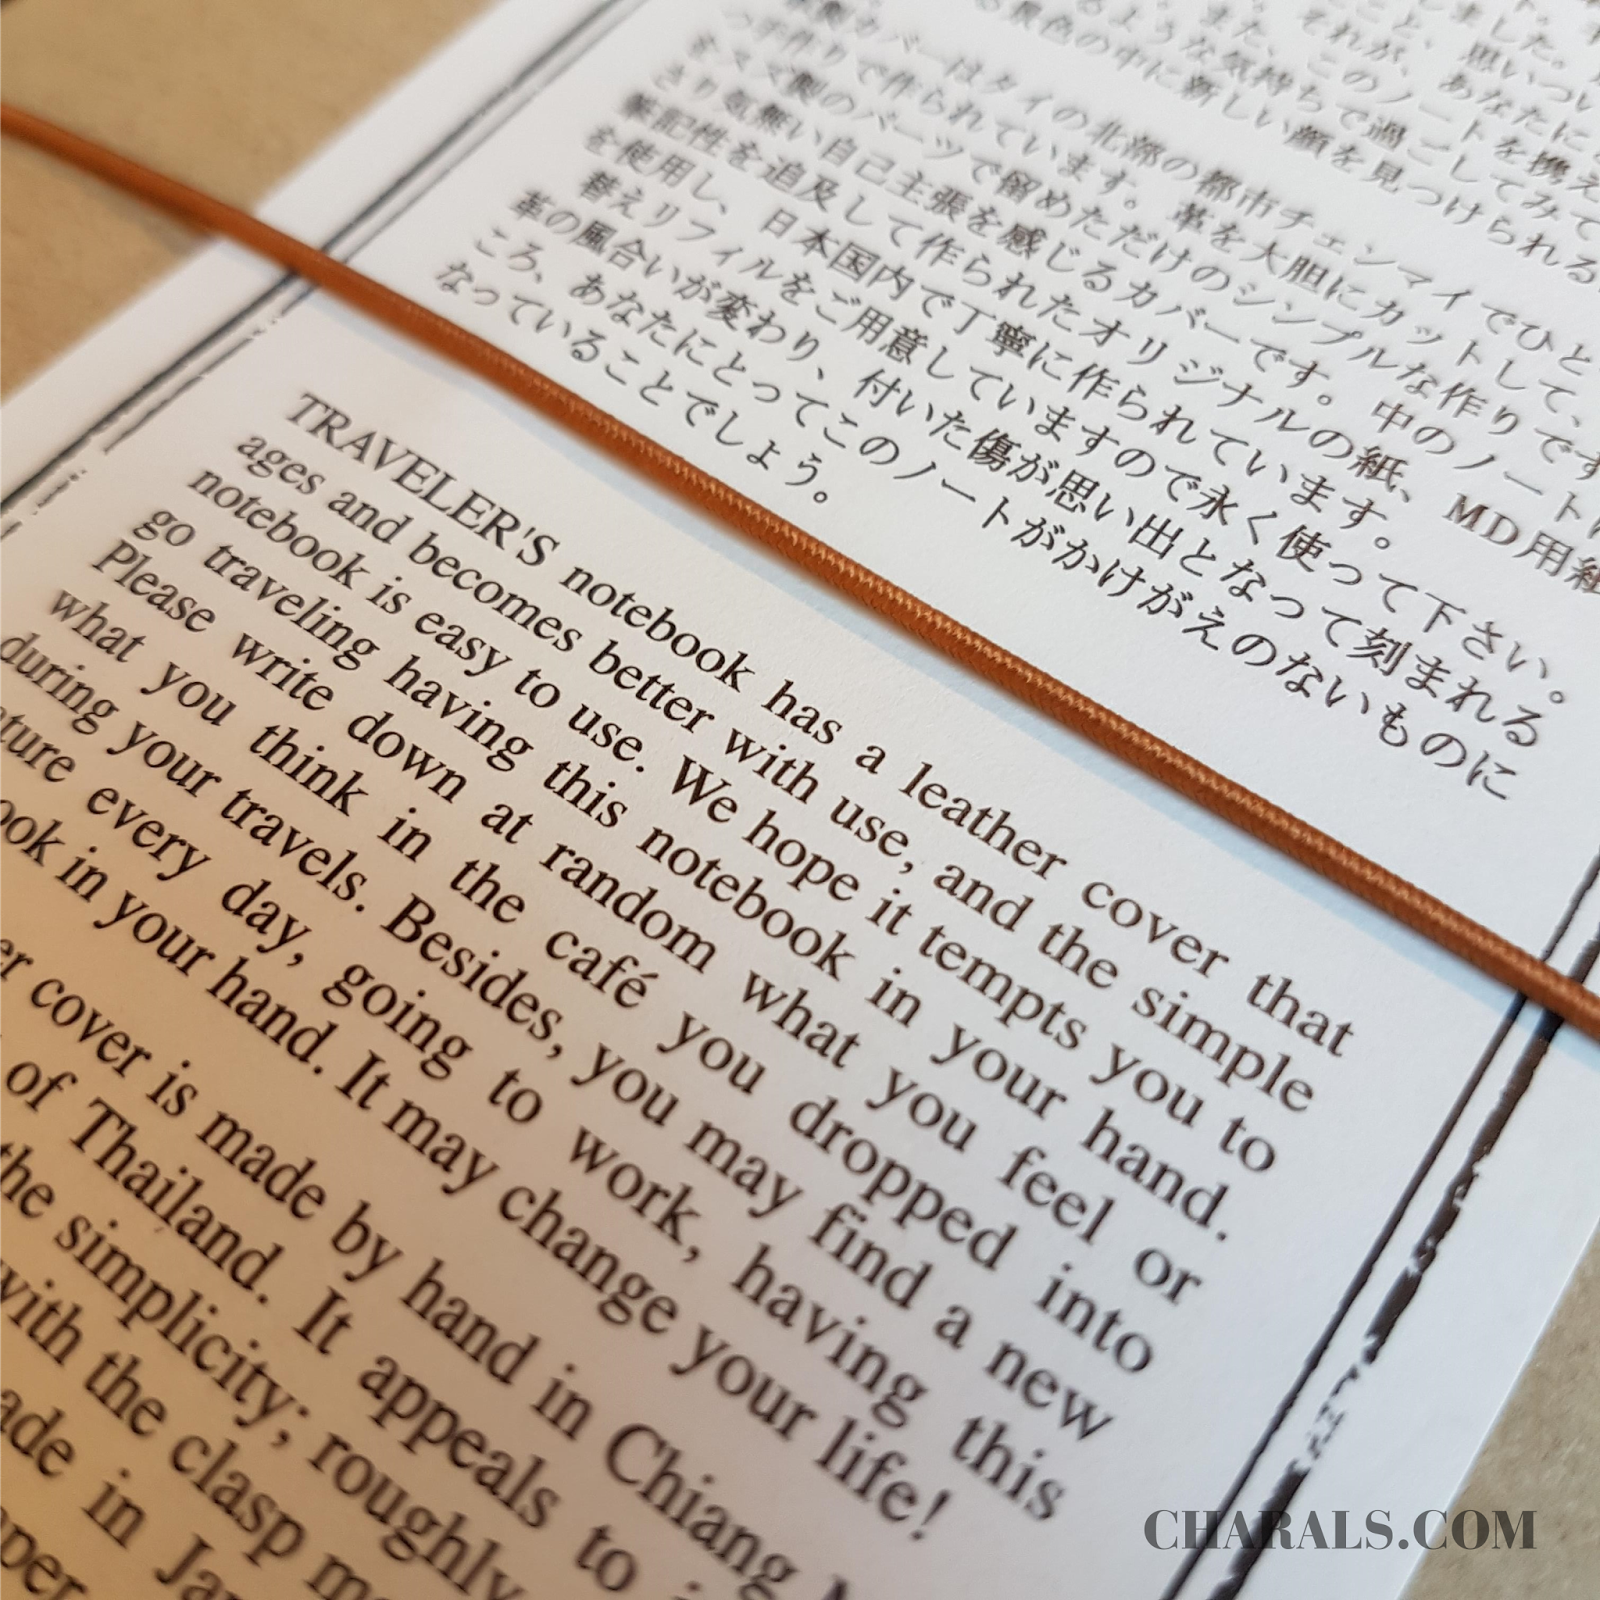 した。
こと、思いつい
それが、あなたに
また、このノートを携え
るような気持ちで過ごしてみて
景色の中に新しい顔を見つけられる
製カバーはタイの北部の都市チェンマイでひと
つ手作りで作られています。革を大胆にカットして、
をスズ製のパーツで留めただけのシンプルな作りです
さり気無い自己主張を感じるカバーです。中のノート
筆記性を追及して作られたオリジナルの紙、MD用紙
を使用し、日本国内で丁寧に作られています。
替えリフィルをご用意していますので永く使って下さい。
革の風合いが変わり、付いた傷が思い出となって刻まれる
ころ、あなたにとってこのノートがかけがえのないものに
なっていることでしょう。
TRAVELER'S notebook has a leather cover that
ages and becomes better with use, and the simple
notebook is easy to use. We hope it tempts you to
go traveling having this notebook in your hand.
Please write down at random what you feel or
what you think in the café you dropped into
during your travels. Besides, you may find a new
ture every day, going to work, having this
ook in your hand. It may change your life!
er cover is made by hand in Chiang
of Thailand. It appeals to
the simplicity; roughly
with the clasp
ade in
per
CHARALS.COM